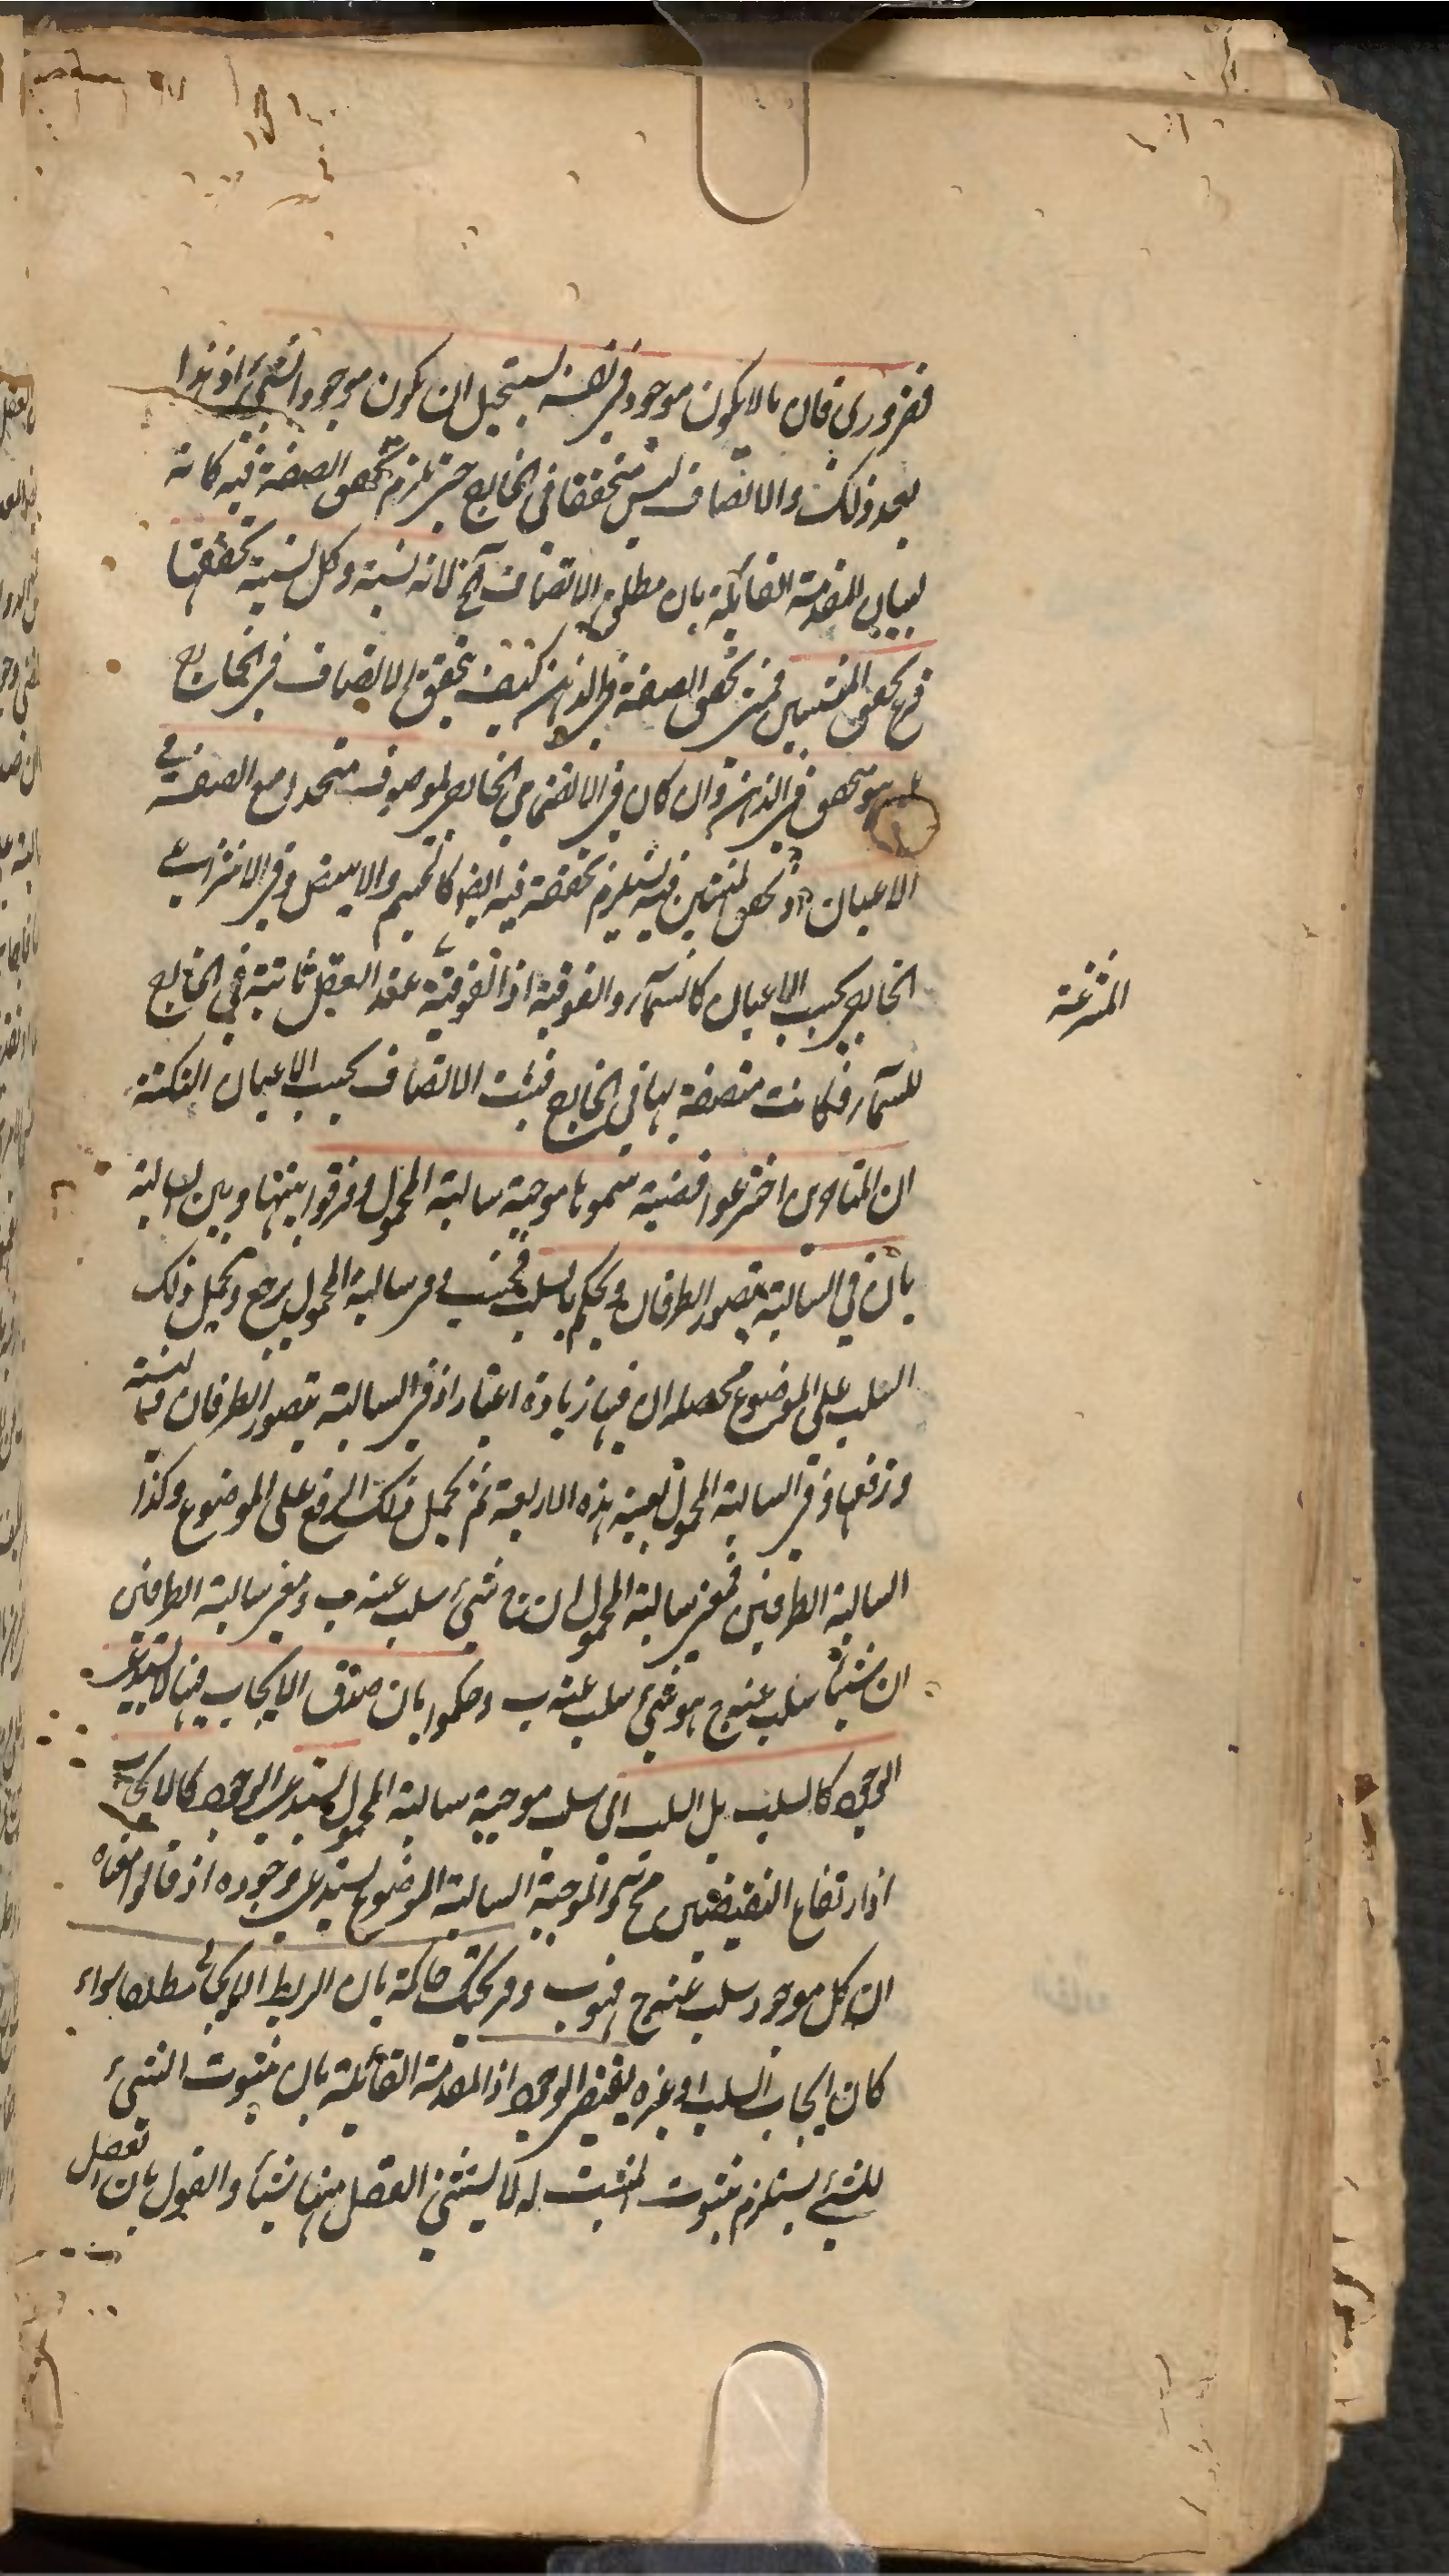 فضروري فان ما لا يكون موجود في نفسه يستحيل ان يكون موجودا لشئ اذ هذا
بعد ذلك والاتصاف ليس متحققا في الخارج حتى يلزم تحقق الصفة فيه كانه
لبيان المقدمة القائلة بان مطلق الاتصاف آلخ لانه نسبة وكل نسبة تحققها
فرع تحقق المنتسبين فمتى تحقق الصفة في الذهن كيف يتحقق الاتصاف في الخارج
بل هو متحقق في الذهن وان كان في الانضمامي الخارجي الموصوف متحد مع الصفة في
الاعيان وتحقق المنتسبين فيه يستلزم تحققه فيه ايضا كالجسم والابيض وفي الانتزاعي
الخارجي بحسب الاعيان كالسماء والفوقية اذ الفوقية عند العقل ثابتة في الخارج
المنتزعة
للسماء فكانت متصفة بها في الخارج فثبت الاتصاف بحسب الاعيان النكتة
ان المتاخرين اخترعوا قضية سموها موجبة سالبة المحمول وفرقوا بينها وبين السالبة
بان في السالبة يتصور الطرفان ويحكم بالسلب فحسب وفي سالبة المحمول يرجع ويحمل ذلك
السلب على الموضوع محصله ان فيها زيادة اعتبار اذ في السالبة يتصور الطرفان والنسبة
وترفعها وفي السالبة المحمول بعينه هذه الاربعة ثم يحمل ذلك الرفع على الموضوع وكذا
السالبة الطرفين فمعنى سالبة المحمول ان ج شئ سلب عنه ب ومعنى سالبة الطرفين
ان شيئا سلب عنه ج هو شئ سلب عنه ب وحكموا بان صدق الايجاب فيها لا يستدعي
الوجود كالسلب بل السلب اي سلب موجبة سالبة المحمول يستدعي الوجود كالايجاب
اذ ارتفاع النقيضين مح والموجبة السالبة الموضوع يستدعي وجوده اذ قالوا معناه
ان كل موجود سلب عنه ج فهو ب وقريحتك حاكمة بان الربط الايجابي مطلقا سواء
كان ايجاب السلب او غيره يقتضي الوجود اذ المقدمة القائلة بان ثبوت الشئ
للشئ يستلزم ثبوت المثبت له لا يستثنى العقل منها شيئا والقول بان العقل